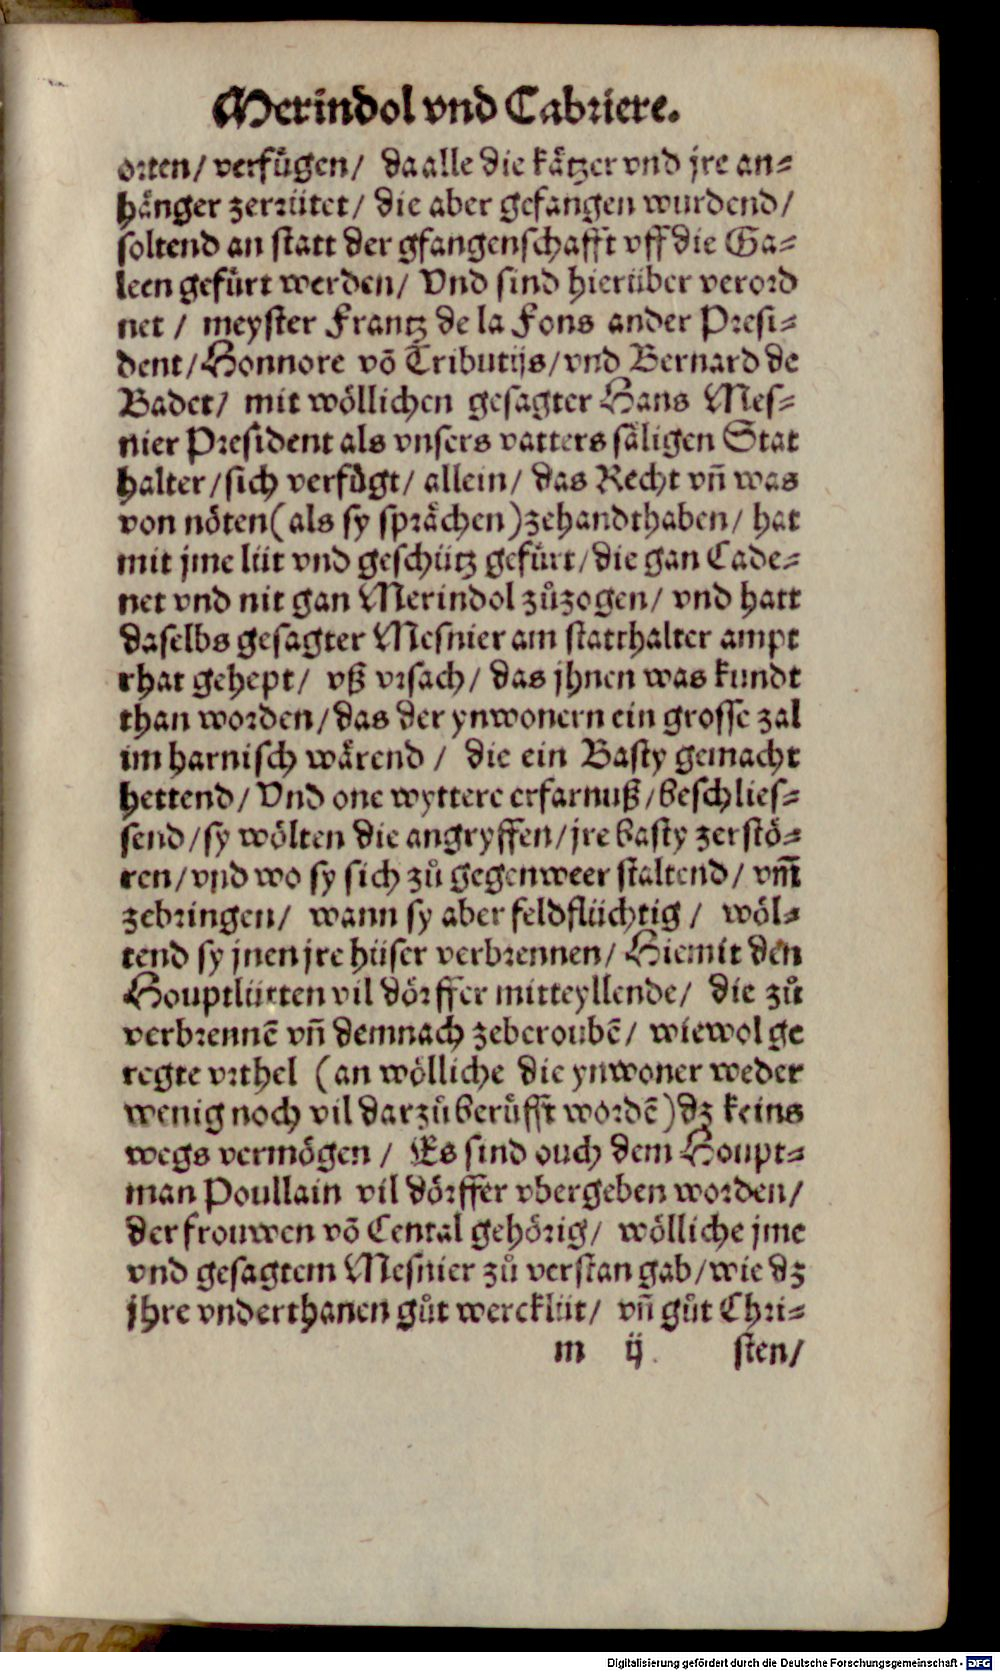 Merindol vnd Cabriere.
orten/ verfuͤgen/ da alle die kaͤtzer vnd jre an-
haͤnger zerruͤtet/ die aber gefangen wurdend/
soltend an statt der gfangenschafft vff die Ga-
leen gefuͤrt werden/ Vnd sind hieruͤber verord
net / meyster Frantz de la Fons ander Presi-
dent/ Honnore võ Tributijs/ vnd Bernard de
Badet/ mit woͤllichen gesagter Hans Mes-
nier President als vnsers vatters saͤligen Stat
halter/ sich verfuͤgt/ allein/ das Recht vñ was
von noͤten (als sy spraͤchen) zehandthaben/ hat
mit jme luͤt vnd geschuͤtz gefuͤrt/ die gan Cade-
net vnd nit gan Merindol zůzogen/ vnd hatt
daselbs gesagter Mesnier am statthalter ampt
rhat gehept/ vß vrsach/ das jhnen was kundt
than worden/ das der ynwonern ein grosse zal
im harnisch waͤrend / die ein Basty gemacht
hettend/ Vnd one wyttere erfarnuß/ beschlies-
send/ sy woͤlten die angryffen/ jre basty zerstoͤ-
ren/ vnd wo sy sich zů gegenweer staltend/ vm̄
zebringen/ wann sy aber feldfluͤchtig / woͤl-
tend sy jnen jre huͤser verbrennen/ Hiemit den
Houptluͤtten vil doͤrffer mitteyllende/ die zů
verbrennẽ vñ demnach zeberoubẽ/ wiewol ge
regte vrthel (an woͤlliche die ynwoner weder
wenig noch vil darzů beruͤfft wordẽ) dz keins
wegs vermoͤgen / Es sind ouch dem Houpt-
man Poullain vil doͤrffer vbergeben worden/
der frouwen võ Cental gehoͤrig/ woͤlliche jme
vnd gesagtem Mesnier zů verstan gab/ wie dz
jhre vnderthanen gůt wercklüt/ vñ gůt Chri-
m ij sten/
Digitalisierung gefördert durch die Deutsche Forschungsgemeinschaft - DFG